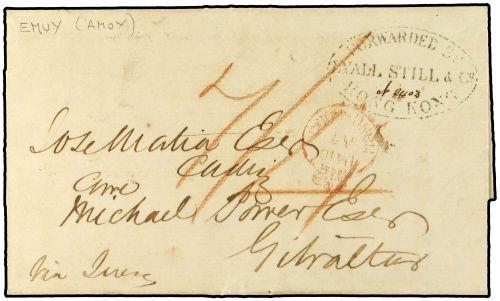 EMUY (AMOY)
FORWARDED BY
LYALL STILL & Co
HONG KONG
Jose Matia Esqr
Cadiz
Care
Michael Power Esqr
Gibraltar
Via Suez